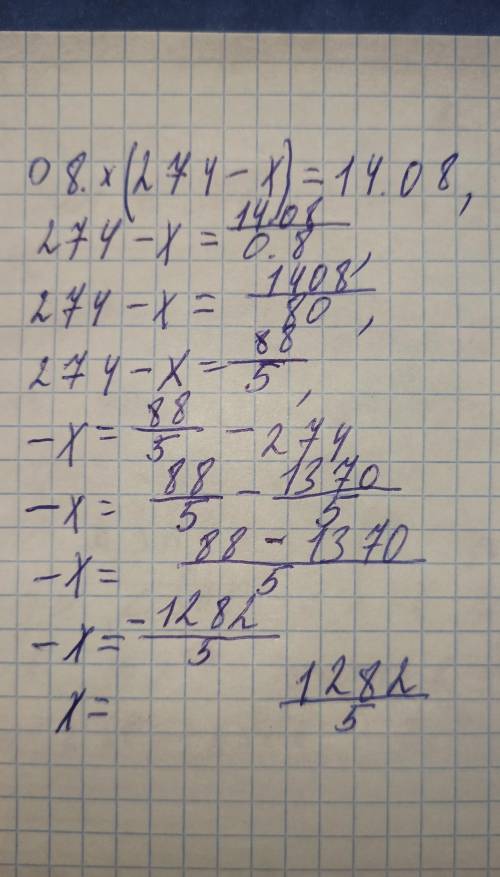 08.x(274-x)=14.08,
274-x=14.08/0.8,
274-x=1408/80,
274-x=88/5,
-x=88/5-274
-x=88/5-1370/5
-x=88-1370/5
-x=-1282/5
x=1282/5